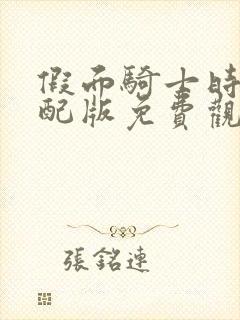 假而騎士時
配版免費觀
張銘連